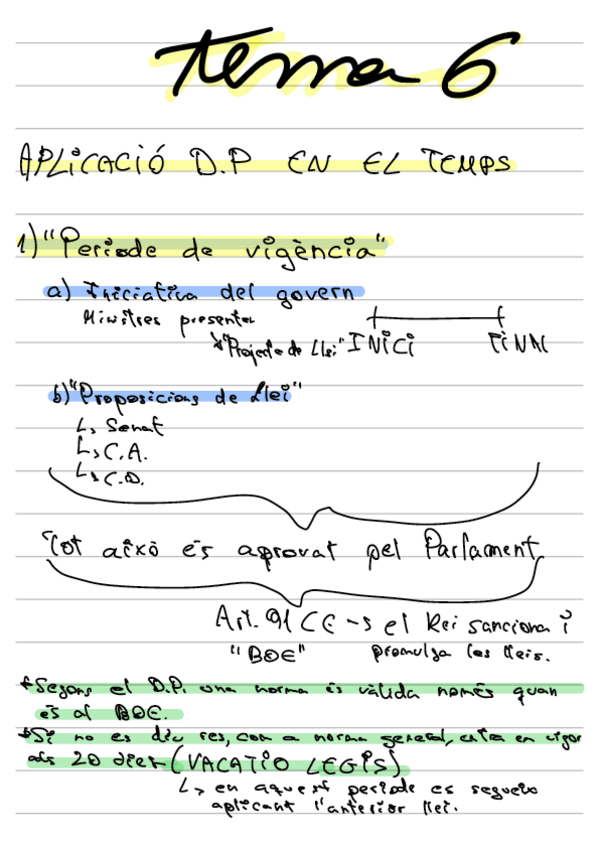 tema 6
APLICACIÓ D.P EN EL TEMPS
1) "Periode de vigència"
a) Iniciativa del govern
Ministres presenten
"Projecte de Llei" INICI FINAL
b) "Proposicions de Llei"
↳ Senat
↳ C.A.
↳ C.D.
Tot això és aprovat pel Parlament
Art. 91 CE → el Rei sanciona i
"BOE" promulga les lleis.
* Segons el D.P. una norma és vàlida només quan
és al BOE.
* Si no es diu res, com a norma general, entra en vigor
als 20 dies (VACATIO LEGIS)
↳ en aquest periode es segueix
aplicant l'anterior llei.